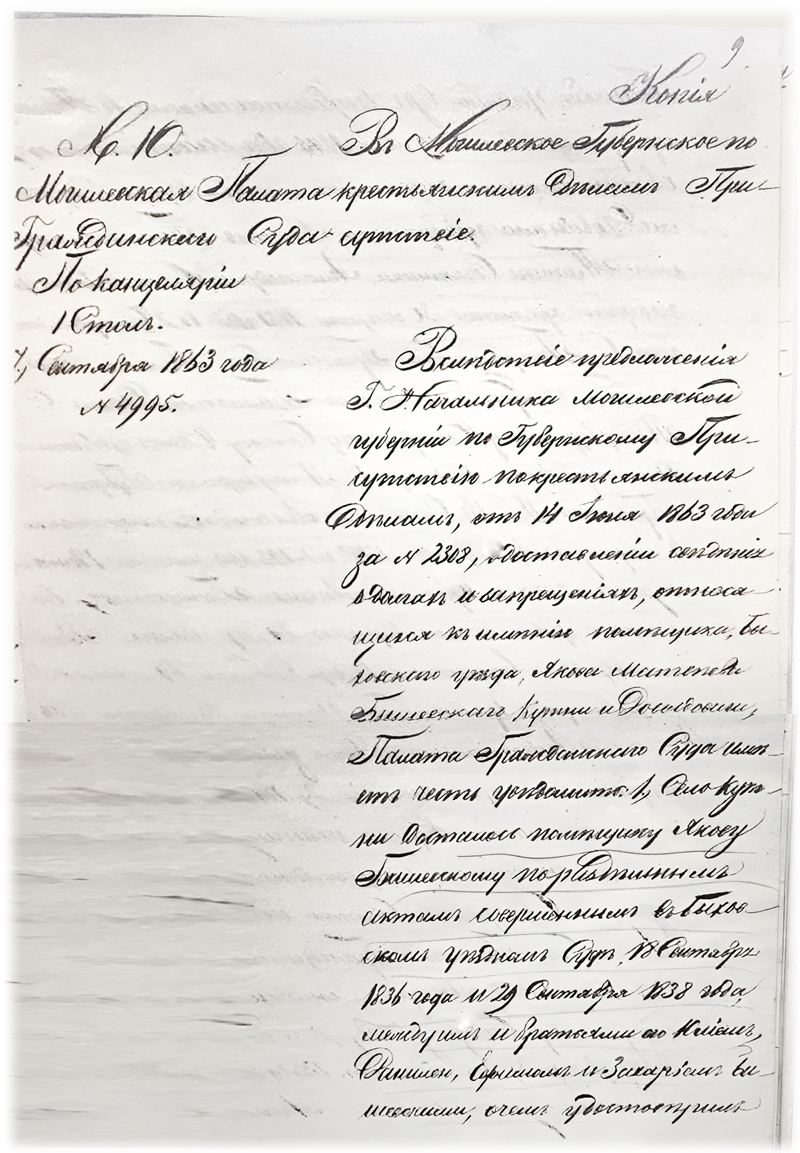 9
Копія
М. Ю.
Могилевская Палата
Гражданскаго Суда
По канцеляріи
1 Столъ.
7, Сентября 1863 года
№ 4995.
Въ Могилевское Губернское по
крестьянскимъ Дѣламъ При-
сутствіе.
Вслѣдствіе предложенія
Г. Начальника Могилевской
губерніи по Губернскому При-
сутствію по крестьянскимъ
Дѣламъ, отъ 14 Іюня 1863 года
за № 2308, о доставленіи свѣдѣній
о долгахъ и запрещеніяхъ, относя-
щихся къ имѣнію помѣщика, Бы-
ховскаго уѣзда, Якова
Билевскаго Кутни и
Палата Гражданскаго Суда имѣ-
етъ честь увѣдомить: 1, Село Кут-
ни досталось помѣщику Якову
Билевскому по раздѣльнымъ
актамъ совершеннымъ въ Быхов-
скомъ уѣздномъ Судѣ, 18 Сентября
1836 года и 29 Сентября 1838 года,
между имъ и братьями его
Даниломъ, Ефимомъ и Захаріемъ Би-
левскими, о чемъ удостовѣрилъ